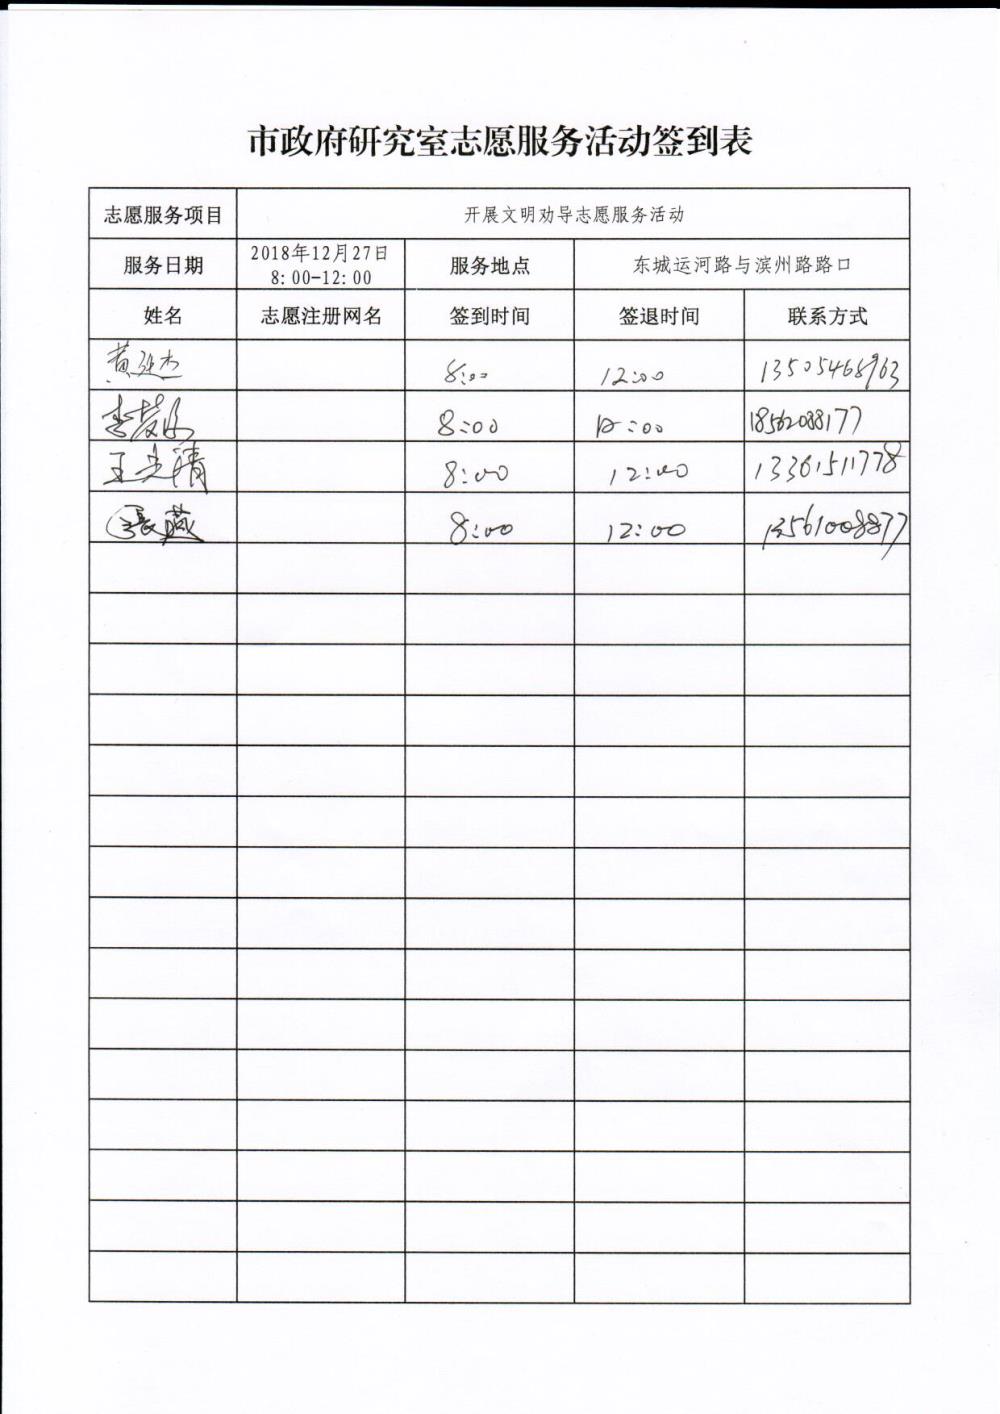 市政府研究室志愿服务活动签到表
志愿服务项目 开展文明劝导志愿服务活动
服务日期 2018年12月27日 8:00-12:00 服务地点 东城运河路与滨州路路口
姓名 志愿注册网名 签到时间 签退时间 联系方式
8:00 12:00 13505468963
8:00 12:00 18562088177
王光清 8:00 12:00 13361511778
张燕 8:00 12:00 13561008877